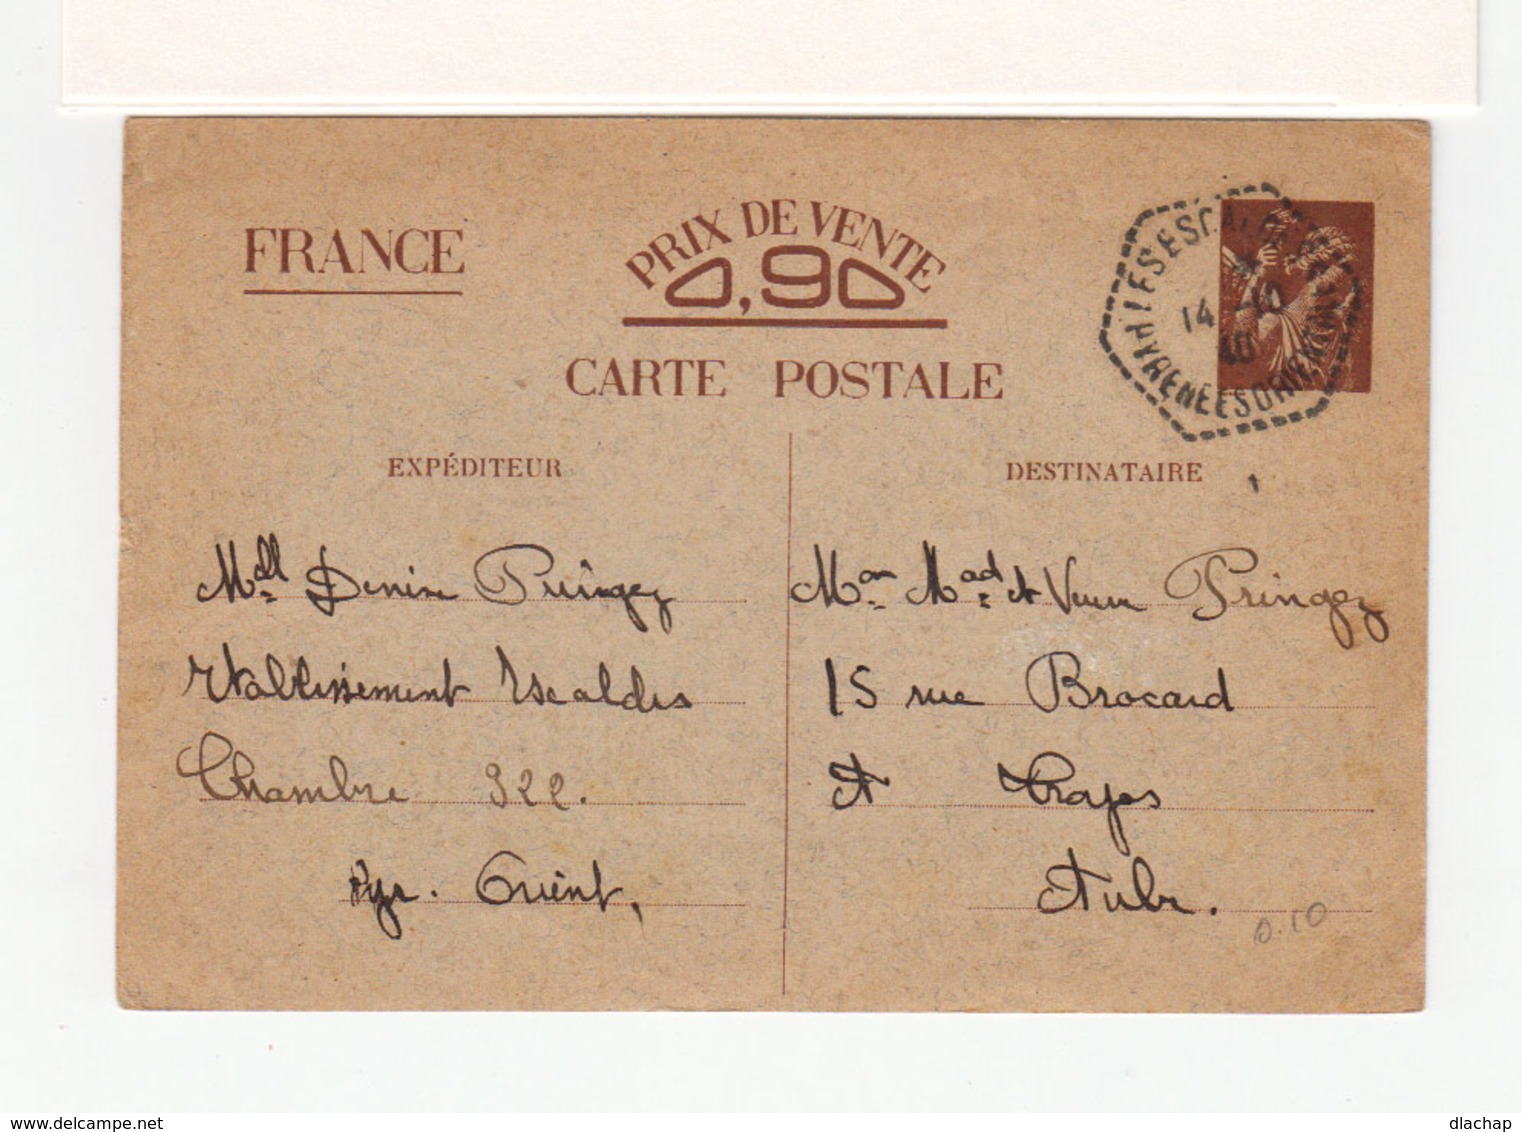 FRANCE
PRIX DE VENTE
0,90
CARTE POSTALE
LES ESCALDES
14 -10
40
PYRENEES ORIENTALES
EXPÉDITEUR
Mdll Denise Pringez
Etablissement Escaldes
Chambre 322.
Pyr. Orient,
DESTINATAIRE
Mon Mad et Veuve Pringez
15 rue Brocard
A Troyes
Aube.
0.10
delcampe.net
dlachap